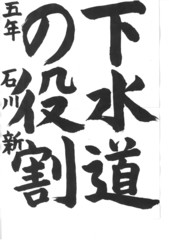 下水道
の役割
五年 石川 新